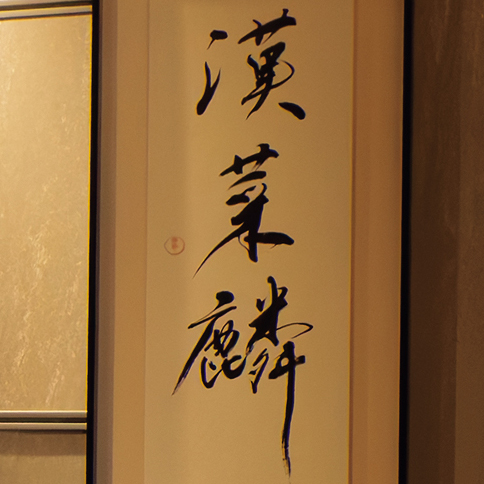 漢菜麟